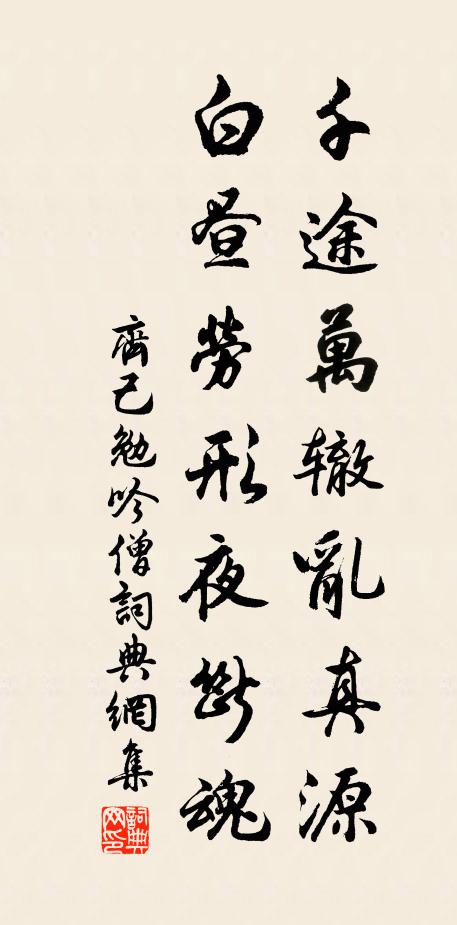 千途萬辙亂真源
白昼勞形夜斷魂
齊己勉吟僧詞典網集
詞典网印